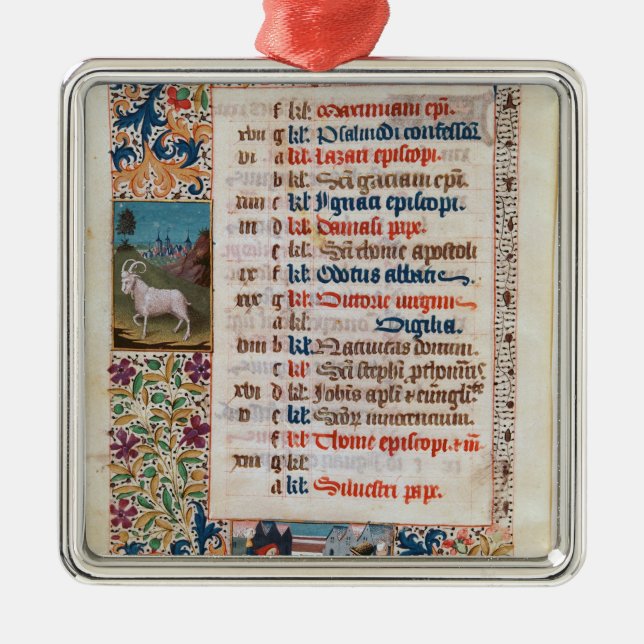 f kl' Maximiani epi.
xviii g kl' Psalmodi confessor
vi a kl' Lazari episcopi.
b kl' Sci graciani epi.
xiiii c kl' Ignaci episcopi.
iii d kl' Damasi pape.
e kl' Sci thome apostoli
xi f kl' Odotus abbatis
xix g kl' Victorie virginis
a kl' Vigilia.
viii b kl' Nativitas domini.
c kl' Sci stephi
xvi d kl' Johis apli & evangl'te
v e kl' innocencium.
f kl' Thome episcopi. & m
xiii g kl'
a kl' Silvestri pape.